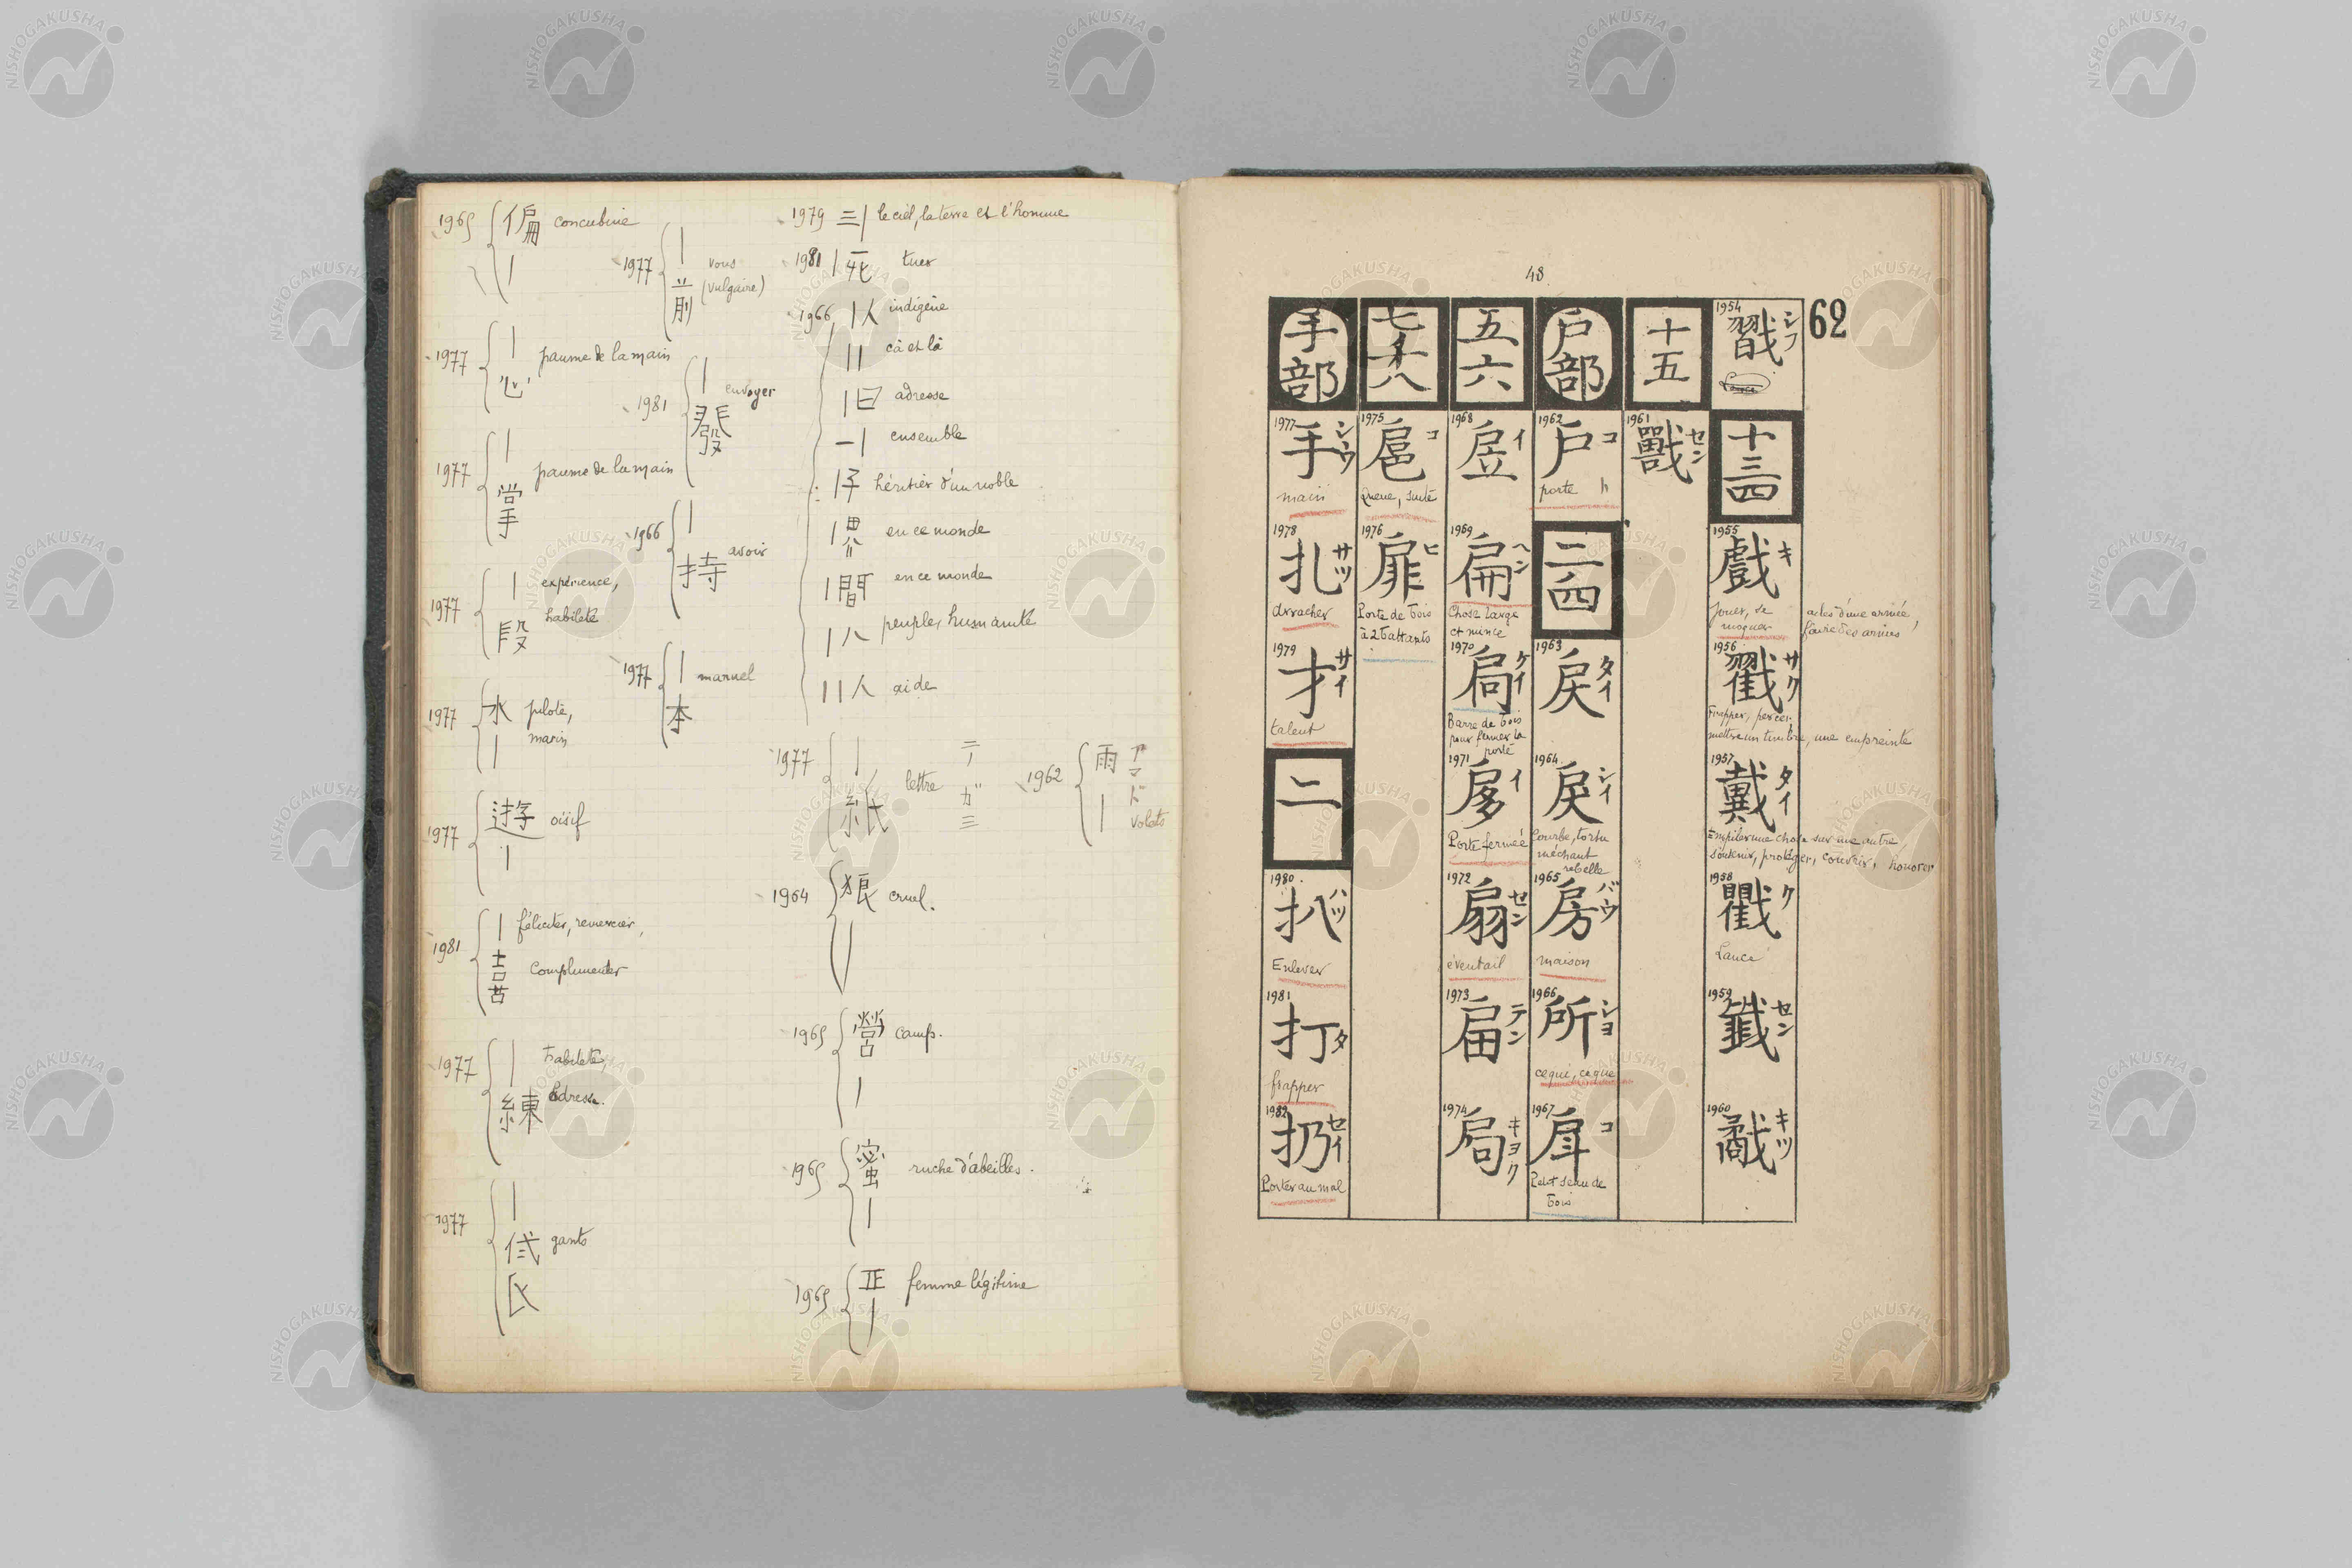 1965 偏 concubine
|
1977 | vous
前 (vulgaire)
1977 | paume de la main
心
1981 | envoyer
發
1977 | paume de la main
掌
1966 | avoir
持
1977 | expérience,
段 habileté
1977 | manuel
本
1977 水 pilote,
| marin
1977 遊 oisif
|
1981 | féliciter, remercier,
complimenter
1977 | habileté,
練 adresse.
1977 | gants
1979 三| le ciel, la terre et l'homme
1981 |死 tuer
1966 |人 indigène
|| çà et là
|曰 adresse
一| ensemble
|仔 héritier d'un noble
|界 en ce monde
|間 en ce monde
|八 peuples, humanité
||人 aide
1977 | lettre
紙
1962 雨 アマド
| volets
1964 狼 cruel.
|
1965 營 camp.
|
1965 蜜 ruche d'abeilles.
|
1965 正 femme légitime
|
48
62
1954 戢 シフ
十三四
1955 戲 キ
Jouer, se
moquer
1956 戳 サク
Frapper, percer,
mettre un timbre, une empreinte
1957 戴 タイ
Empiler une chose sur une autre,
soutenir, protéger, couvrir, honorer
1958 戵 ク
Lance
1959 セン
1960 キツ
十五
1961 セン
戶部
1962 戶 コ
porte
二四
1963 戾 タイ
1964 戾 シイ
Courbe, tortu
méchant
rebelle
1965 房 バウ
maison
1966 所 シヨ
ce qui, ce que
1967 コ
Petit seau de
bois
五六
1968 イ
1969 扁 ヘン
Chose large
et mince
1970 扃 ケイ
Barre de bois
pour fermer la
porte
1971 扅 イ
Porte fermée
1972 扇 セン
éventail
1973 テン
1974 キヨク
七八
1975 扈 コ
Queue, suite
1976 扉 ヒ
Porte de bois
à 2 battants
手部
1977 手 シウ
main
1978 扎 サツ
arracher
1979 才 サイ
talent
二
1980 扒 ハツ
Enlever
1981 打 タ
frapper
1982 扔 セイ
Porter au mal